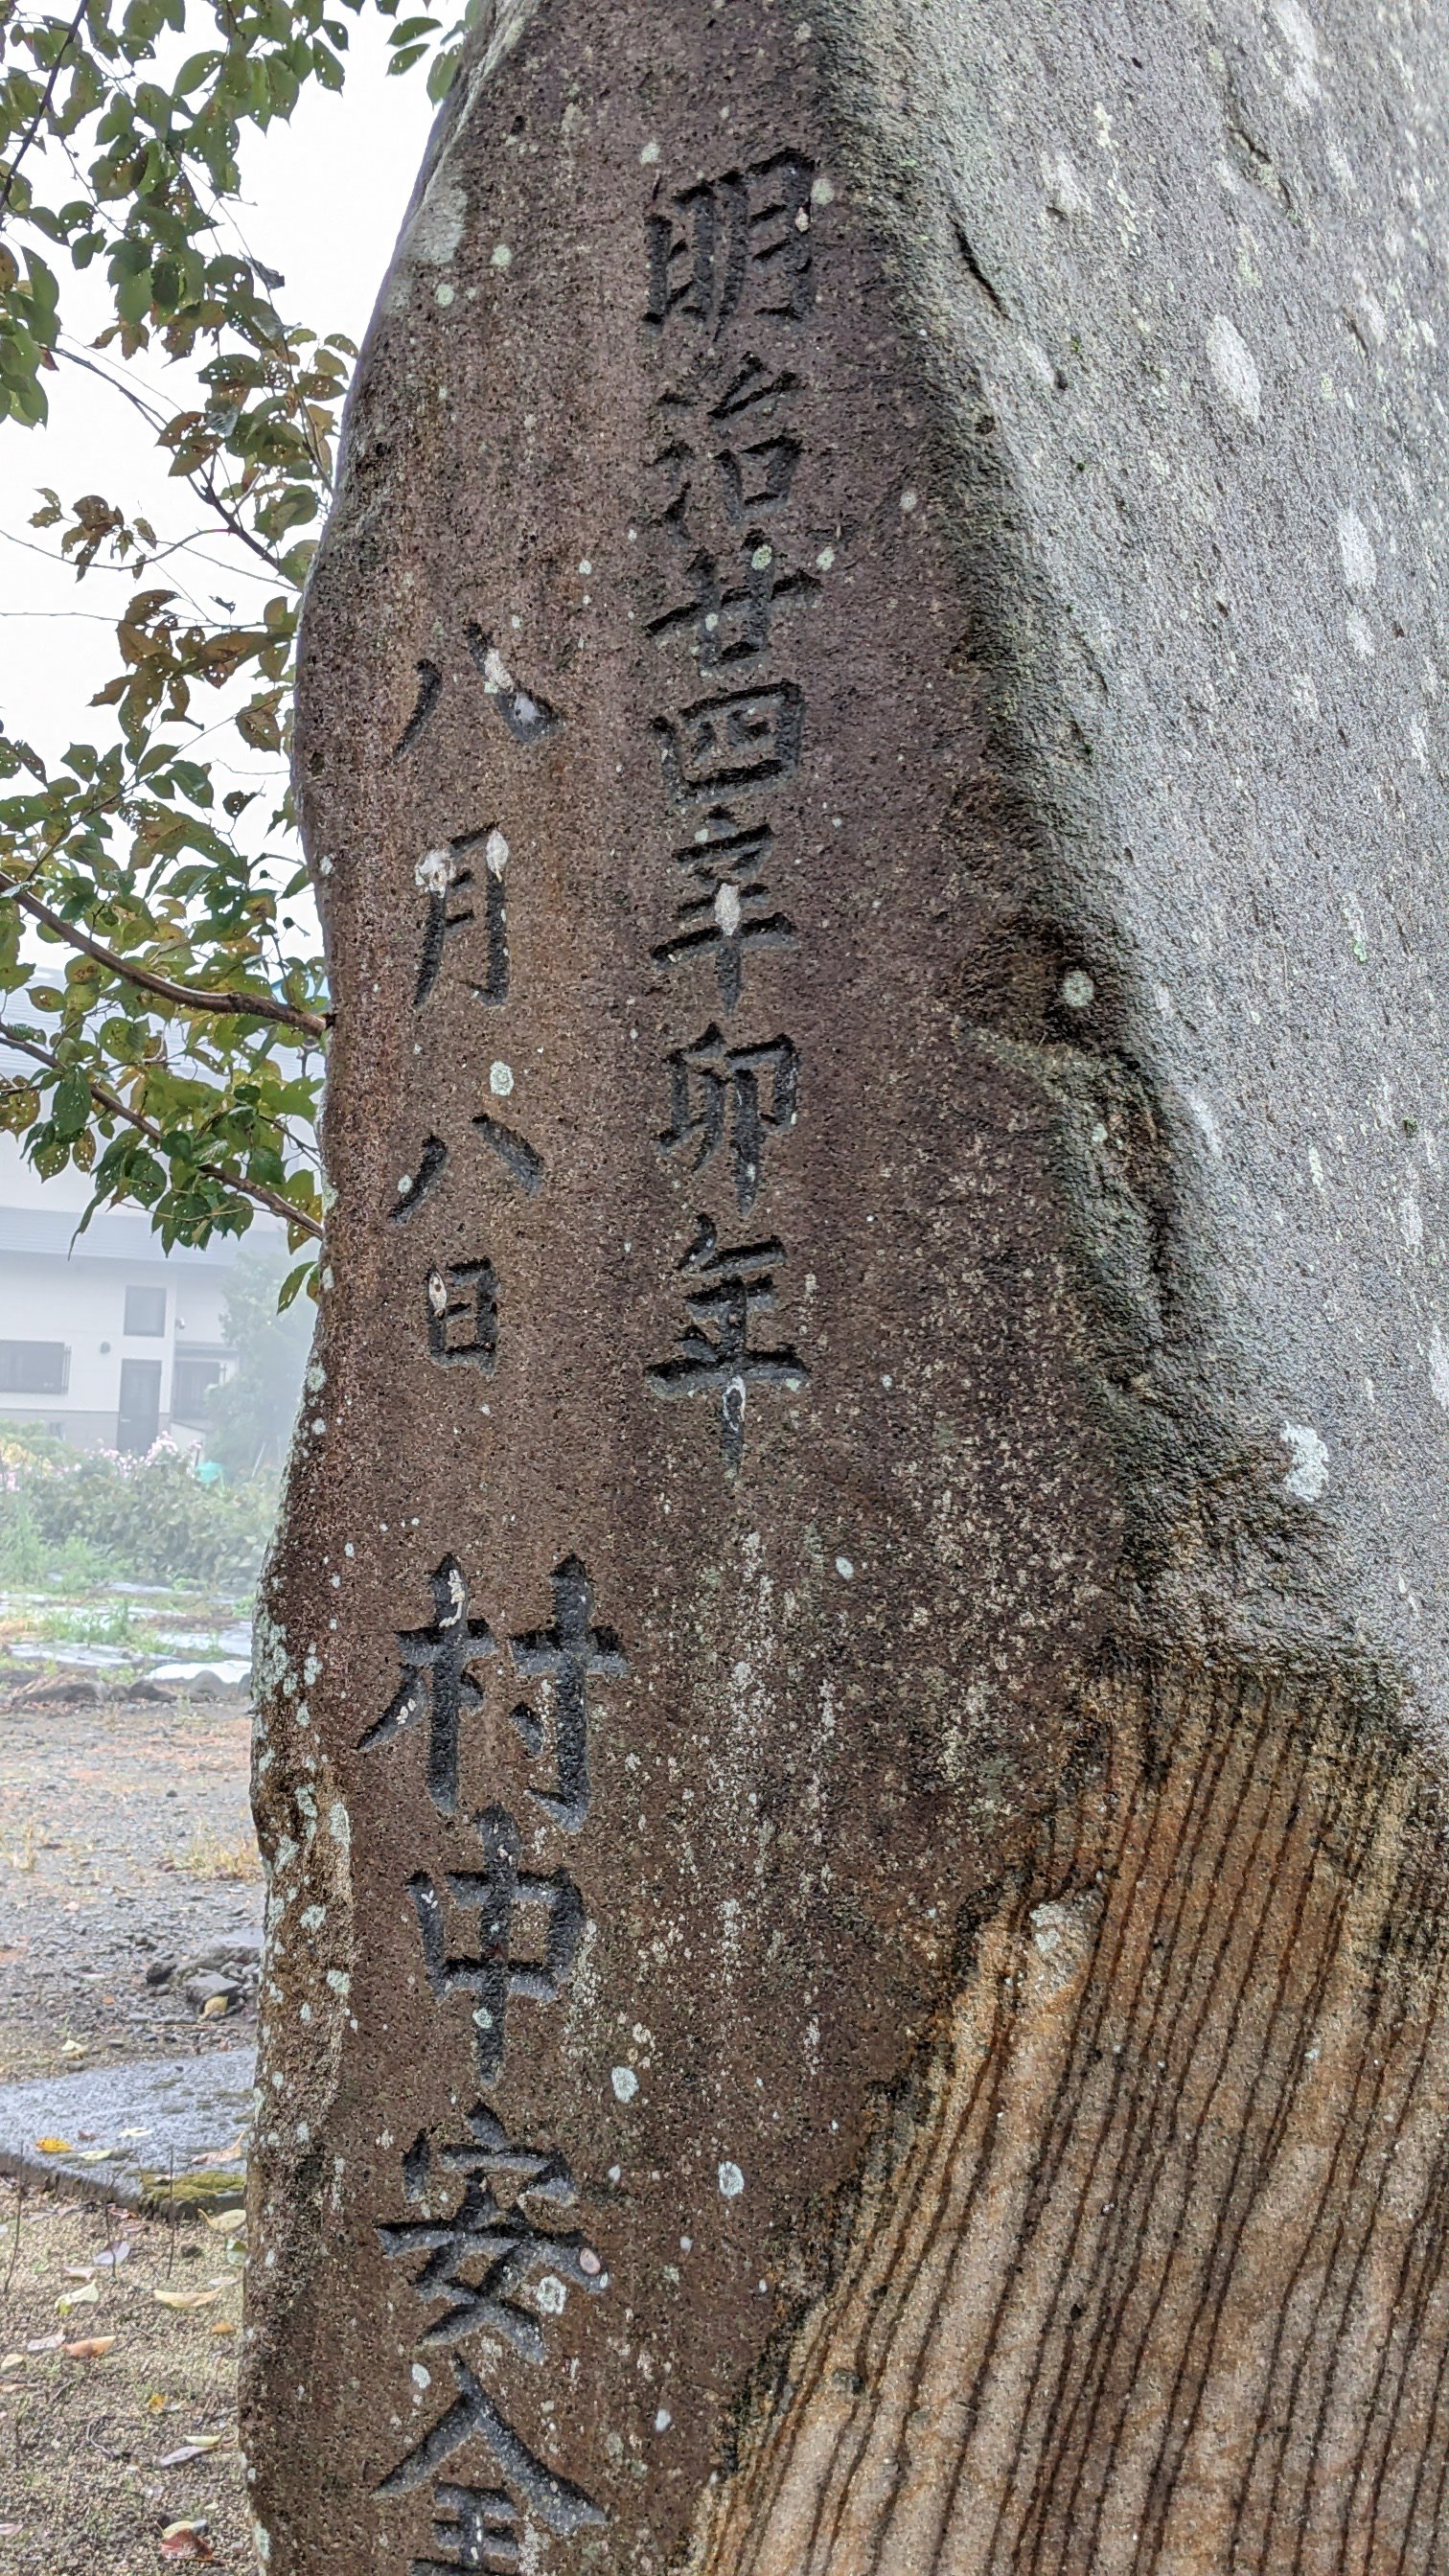 明治廿四辛卯年
八月八日　村中安全